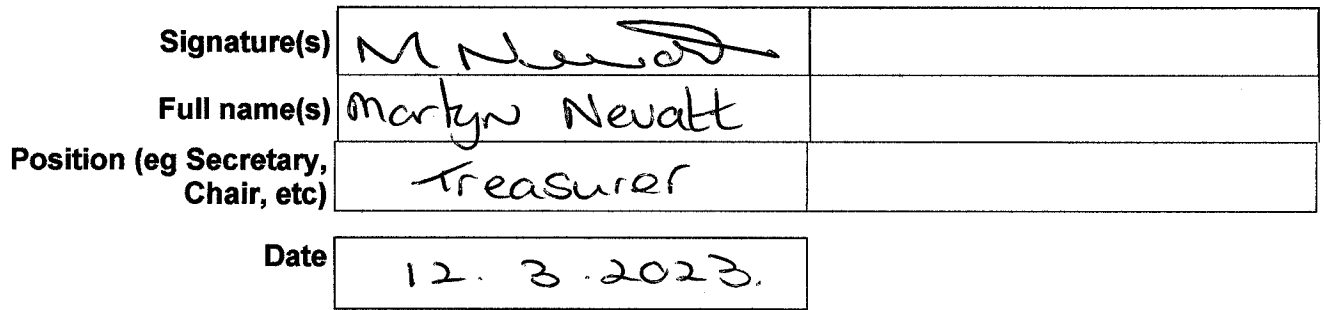 Signature(s) M Nevatt
Full name(s) Martyn Nevatt
Position (eg Secretary,
Chair, etc) Treasurer
Date 12. 3. 2023.